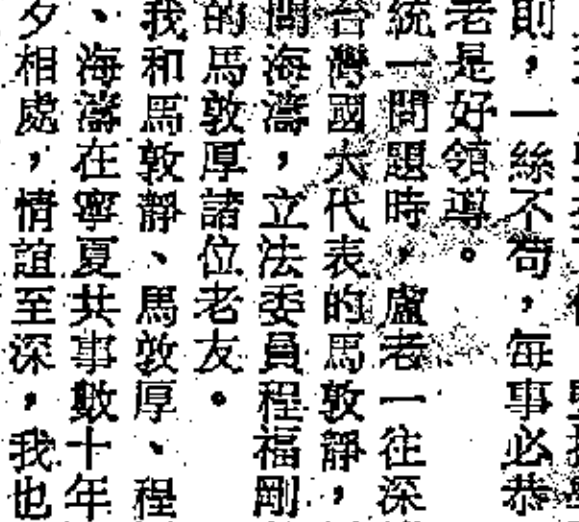 則，一絲不苟，每事必恭
老是好領導。
統一問題時，盧老一往深
台灣國大代表的馬敦靜，
問海濤，立法委員程福剛
的馬敦厚諸位老友。
我和馬敦靜、馬敦厚、程
、海濤在寧夏共事數十年
夕相處，情誼至深，我也